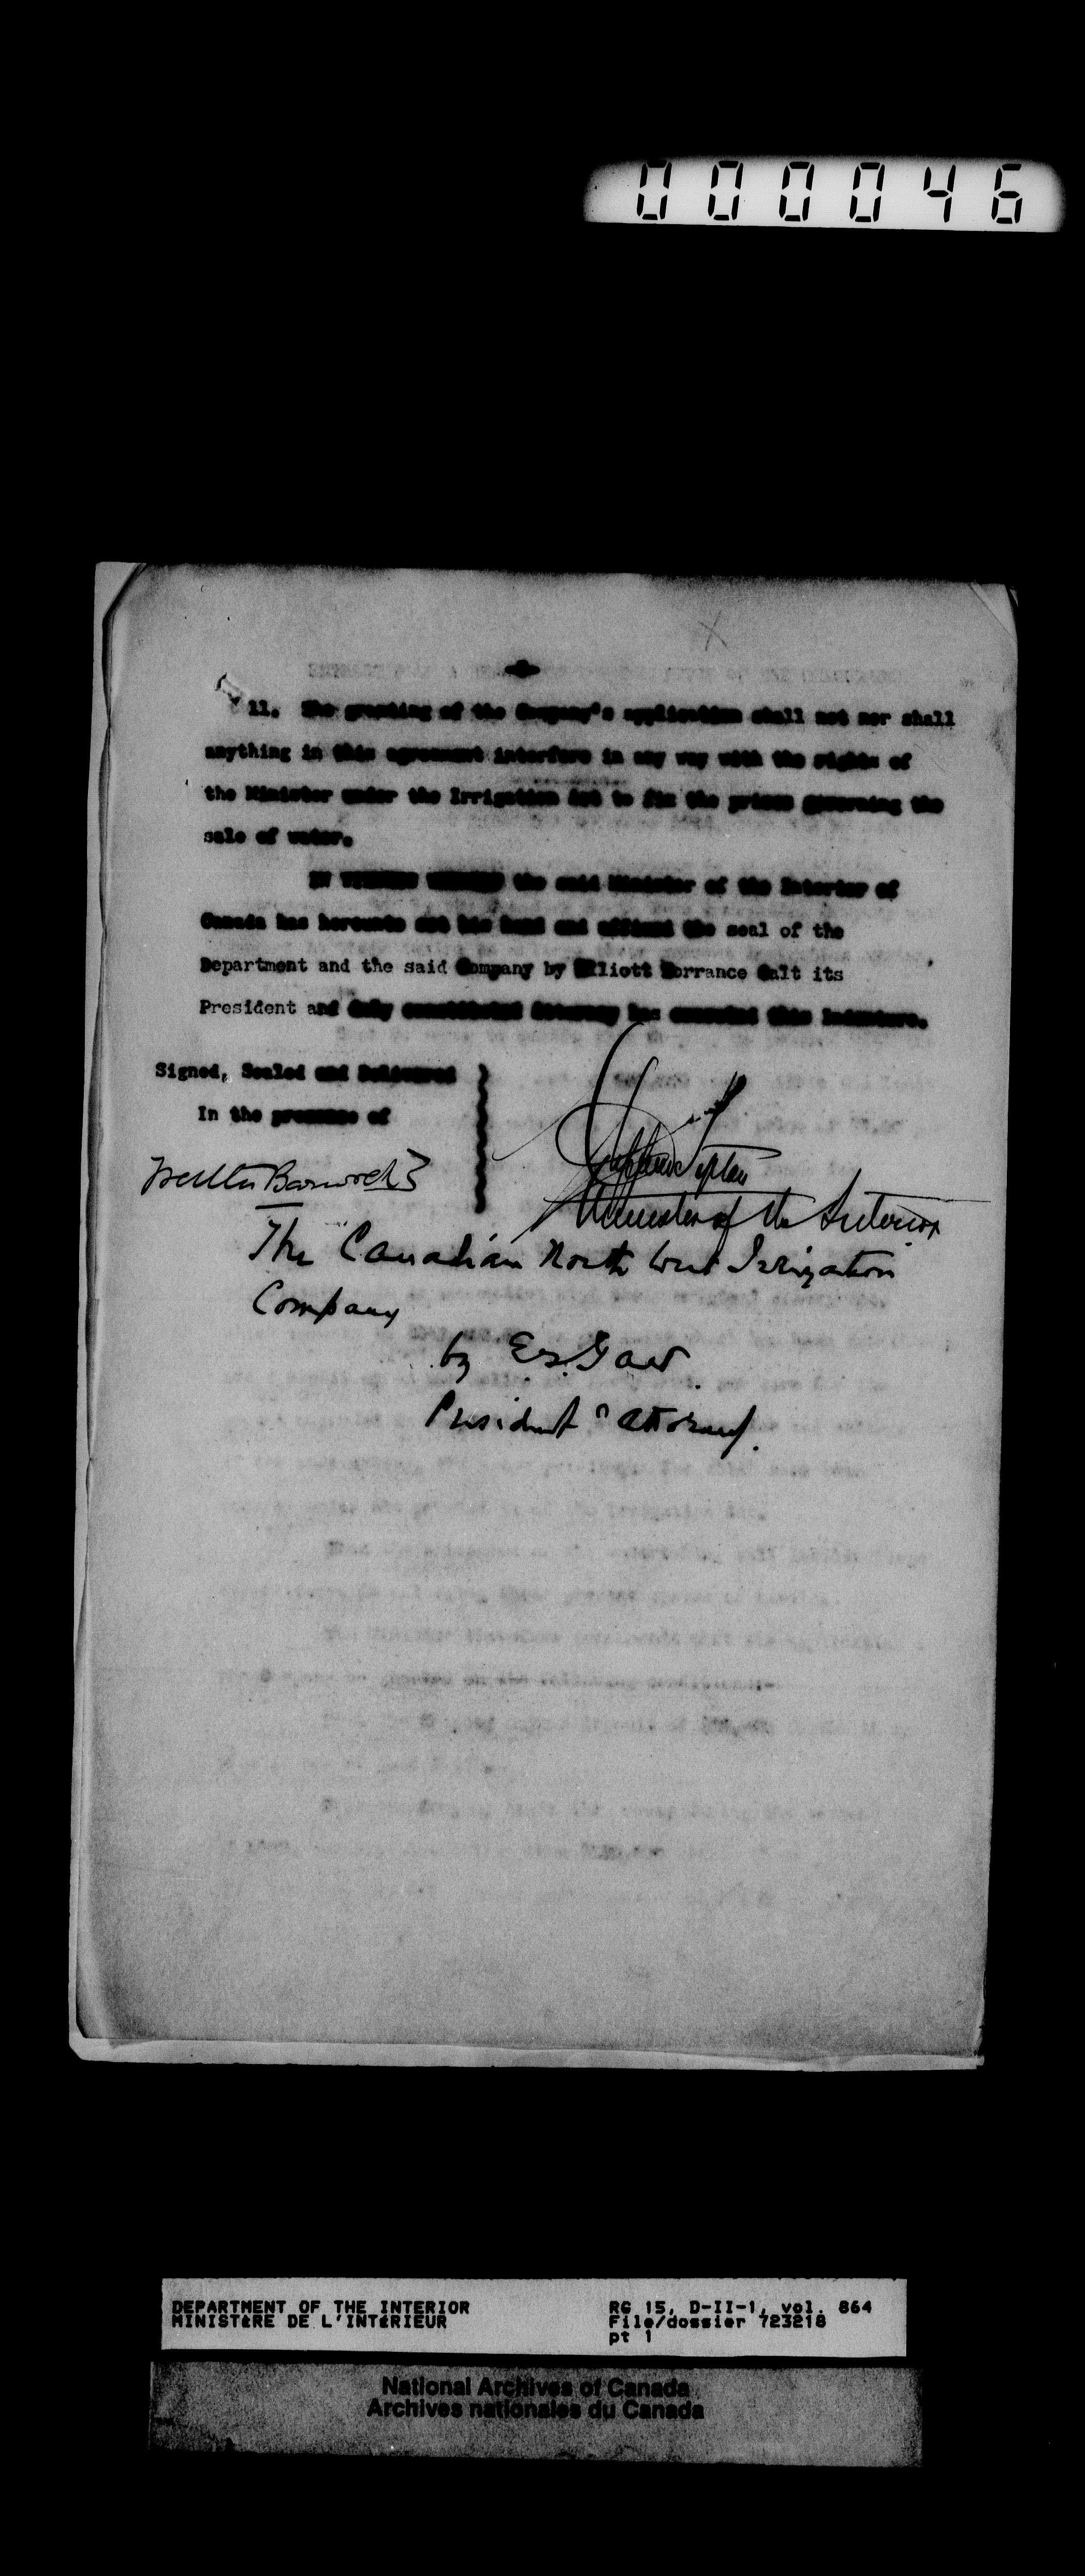 000046
11. The granting of the Company's application shall not nor shall
anything in this agreement interfere in any way with the rights of
the Minister under the Irrigation Act to fix the prices governing the
sale of water.
IN WITNESS WHEREOF the said Minister of the Interior of
Canada has hereunto set his hand and affixed the seal of the
Department and the said Company by Elliott Torrance Galt its
President and duly constituted Attorney has executed this Indenture.
Signed, Sealed and Delivered
In the presence of
Minister of the Interior
The Canadian North West Irrigation
Company
by E.T. Galt
President " Attorney.
DEPARTMENT OF THE INTERIOR
MINISTÈRE DE L'INTÉRIEUR
RG 15, D-II-1, vol. 864
File/dossier 723218
pt 1
National Archives of Canada
Archives nationales du Canada